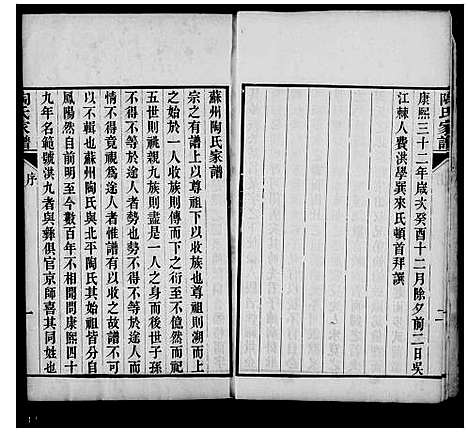 陶氏家譜
康熙三十二年歲次癸酉十二月除夕前二日吳
江棘人費洪學巽來氏頓首拜譔
蘇州陶氏家譜
宗之有譜上以尊祖下以收族也尊祖則溯而上
之始於一人收族則傳而下之衍至不億然而服
五世則祧親九族則盡是一人之身而後世子孫
不得不等於途人者勢也勢不得不等於途人而
情不得竟視為途人者惟譜有以收之故譜不可
以不輯也蘇州陶氏與北平陶氏其始祖皆分自
鳳陽然自前明至今數百年不相聞問康熙四十
九年名範號洪九者與彝俱官京師喜其同姓也
陶氏家譜
序
一